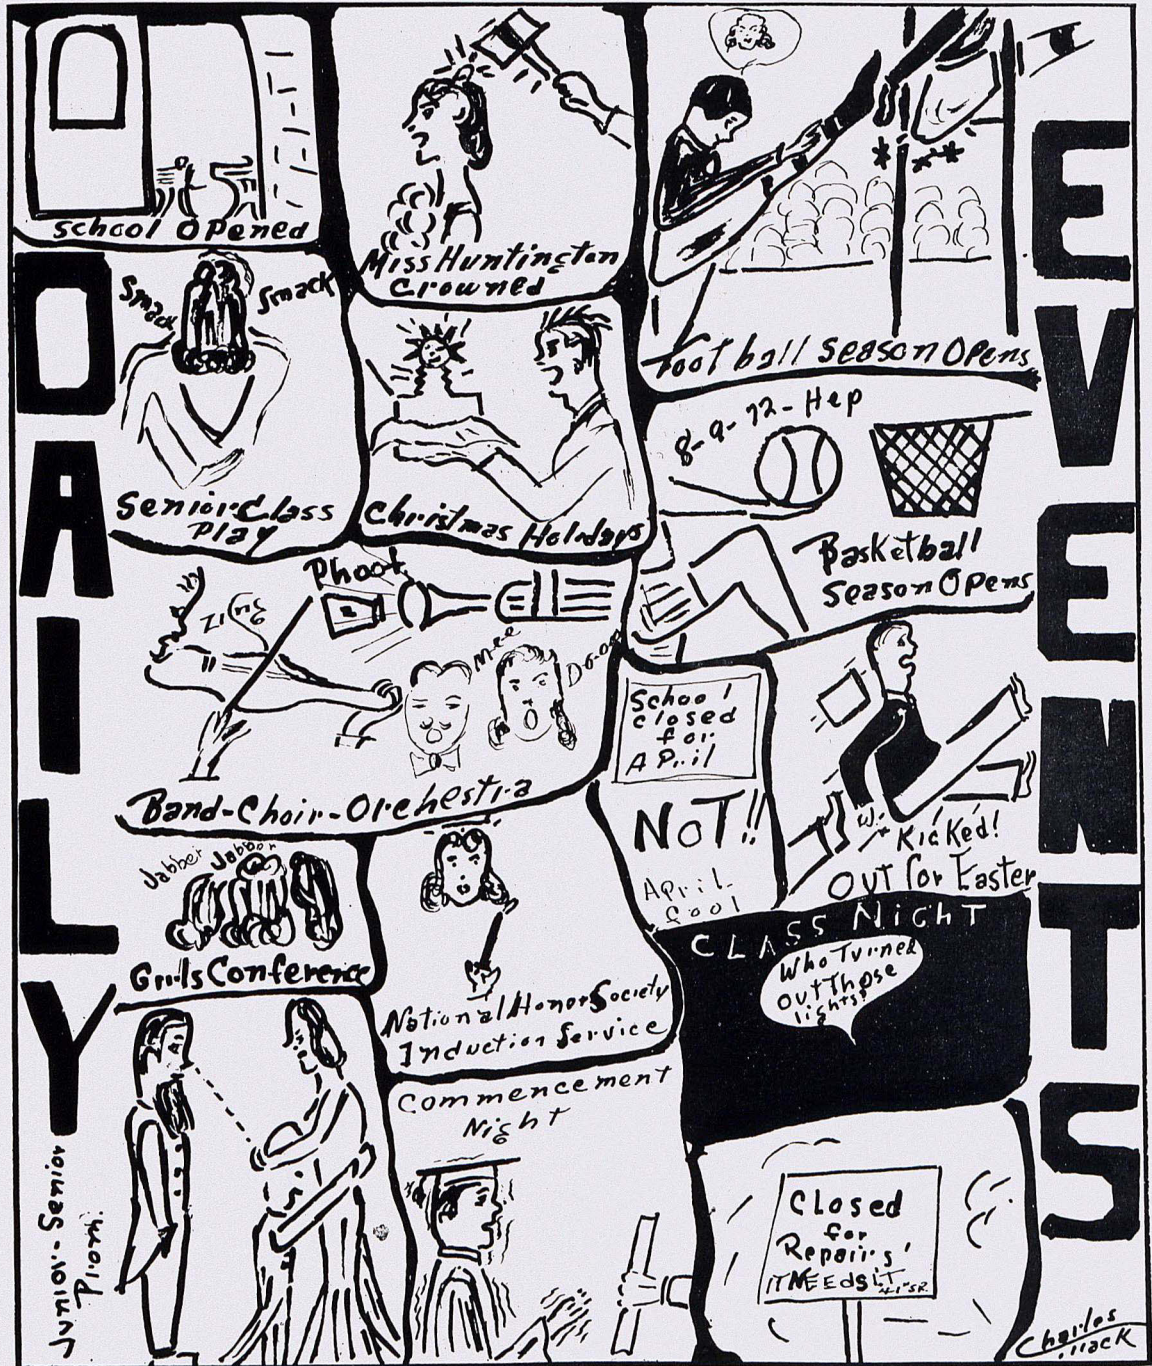 DAILY
EVENTS
School Opened
Miss Huntington
Crowned
Football Season Opens
Smack
Smack
Senior Class
Play
Christmas Holidays
8-9-72-Hep
Basketball
Season Opens
Zing
Phoot
Mee
Do-oo
Band-Choir-Orchestra
School
closed
for
April
NOT!!
April
fool
Kicked!
Out for Easter
Jabber Jabber
Girls Conference
National Honor Society
Induction Service
CLASS NIGHT
Who Turned
Out Those
lights?
Junior-Senior
Prom
Commencement
Night
Closed
for
Repairs!
IT NEEdS IT
Charles